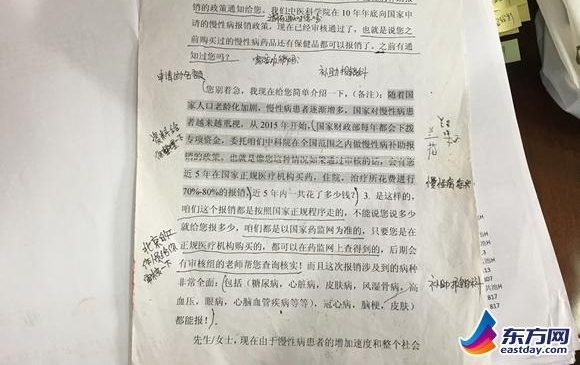 销的政策通知给您。我们中医科学院在10年年底向国家申
请的慢性病报销政策，现在已经审核通过了，也就是说您之
前购买过的慢性病药品还有保健品都可以报销了。之前有通
知过您吗？
补助报销科
您别着急，我现在给您简单介绍一下，(备注)：随着国
家人口老龄化加剧，慢性病患者逐渐增多，国家对慢性病患
者越来越重视，从2015年开始，国家财政部每年都会下拨
专项资金，委托咱们中科院在全国范围之内做慢性病补助报
销的政策，也就是像您这种情况如果通过审核的话，会有您
近5年在国家正规医疗机构买药，住院，治疗所花费进行
70%-80%的报销，近5年内一共花了多少钱？3.是这样的，
慢性病
咱们这个报销都是按照国家正规程序走的，不能说您说多少
就给您报多少，咱们都是以国家药监网为准的，只要您是在
正规医疗机构购买的，都可以在药监网上查得到的，后期会
有审核组的老师帮您查询核实！而且这次报销涉及到的病种
非常全面：包括(糖尿病，心脏病，皮肤病，风湿骨病，高
血压，眼病，心脑血管疾病等等)，冠心病，脑梗，皮肤)
都能报！
先生/女士，现在由于慢性病患者的增加速度和整个社会
817
817
东方网
eastday.com